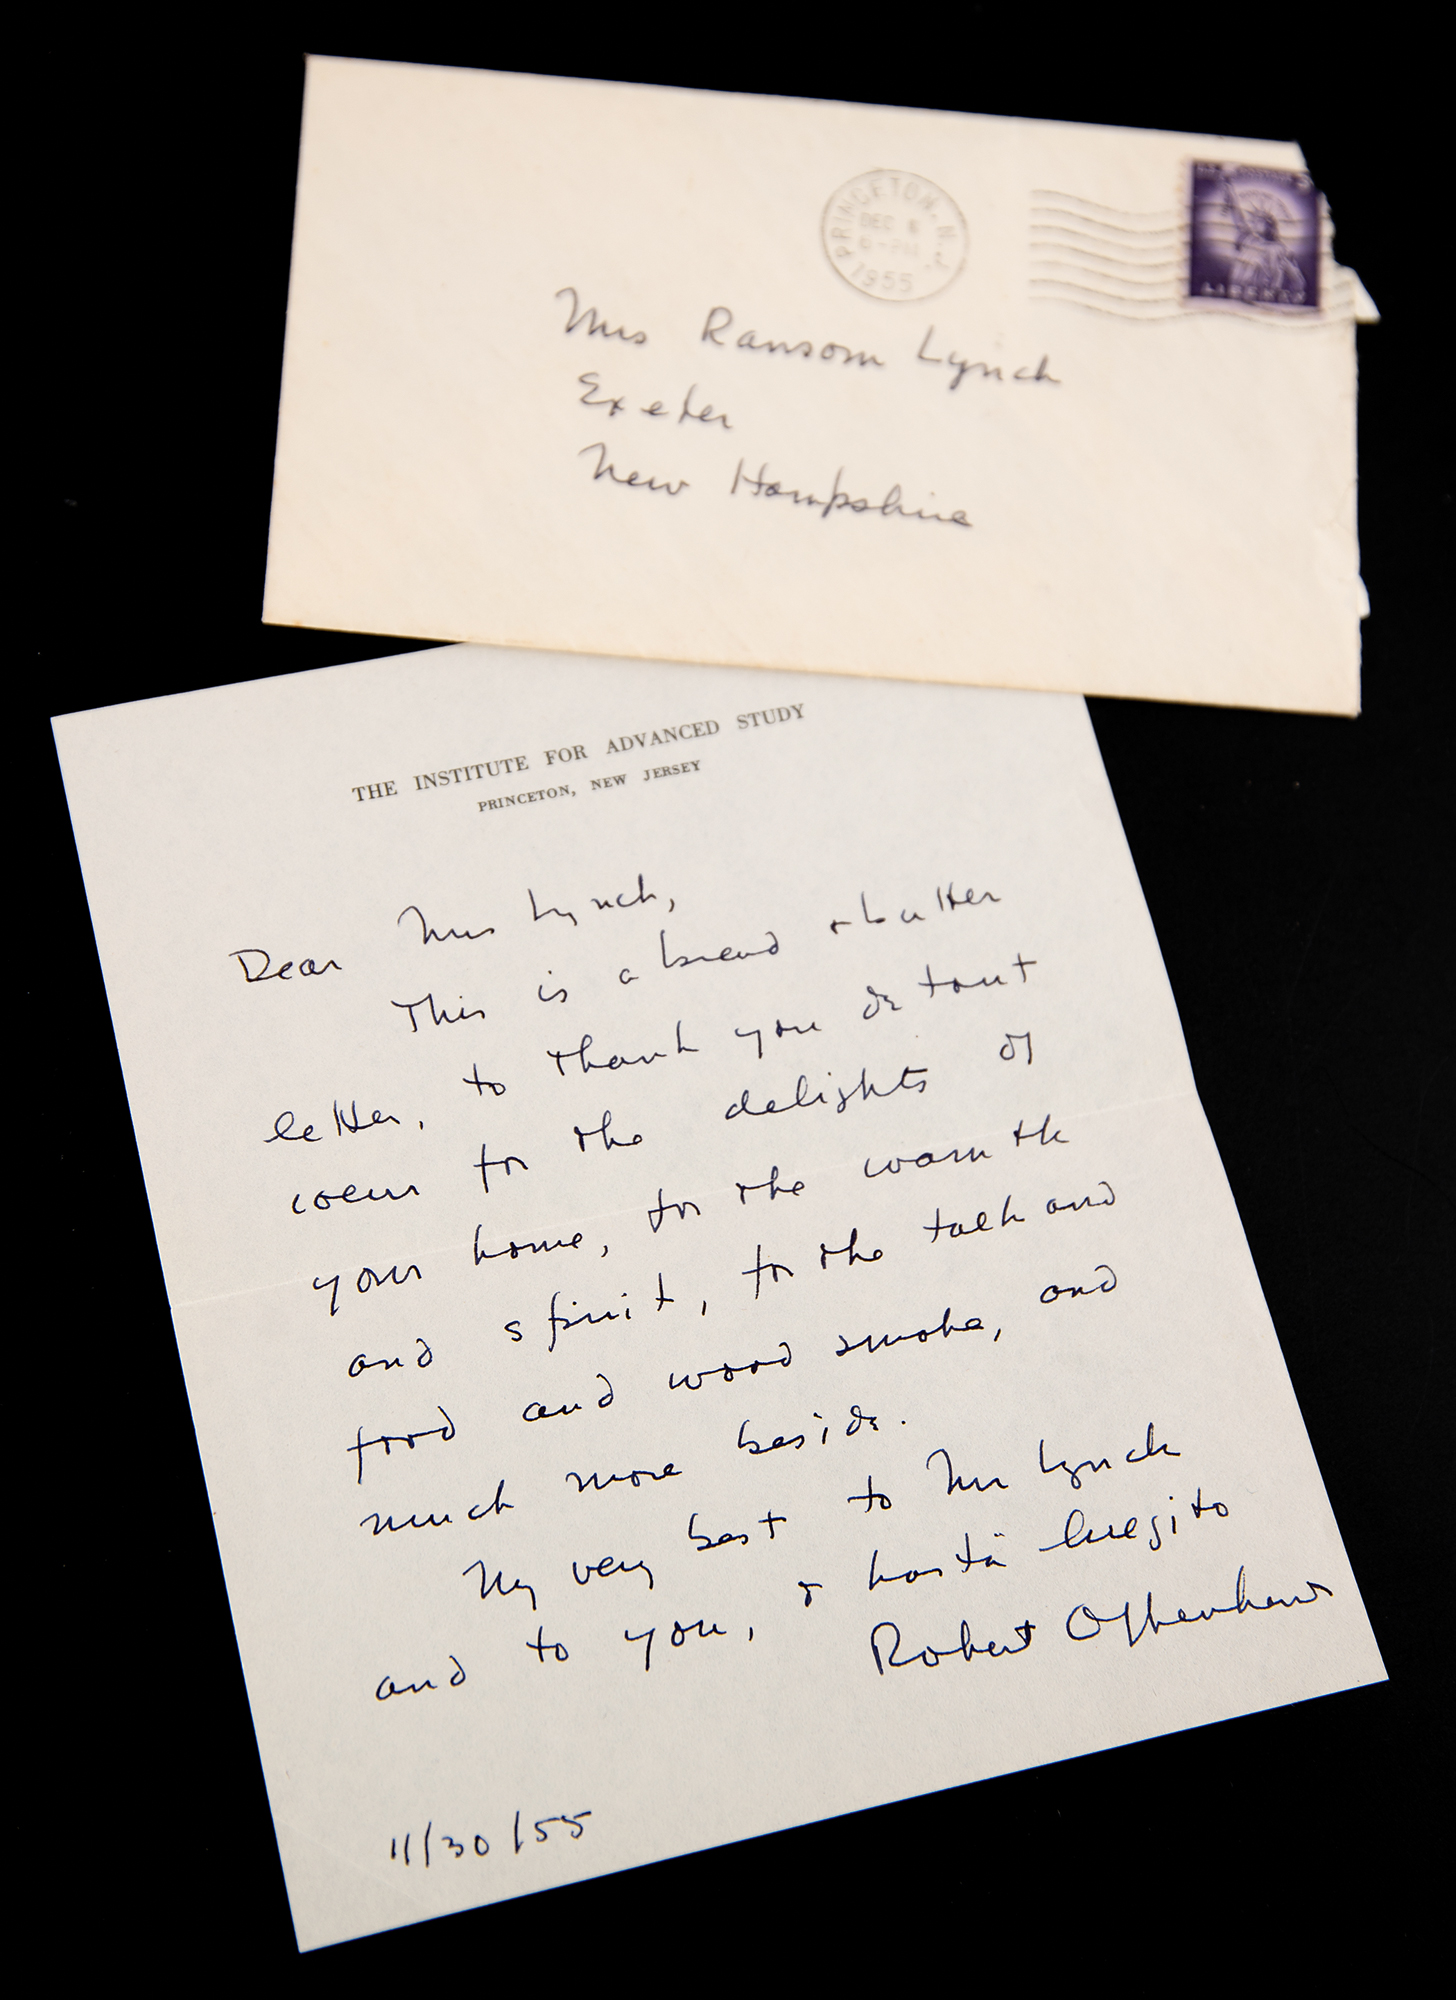 PRINCETON, N.J.
DEC 6
6-PM
1955
LIBERTY
Mrs Ransom Lynch
Exeter
New Hampshire
THE INSTITUTE FOR ADVANCED STUDY
PRINCETON, NEW JERSEY
Dear Mrs Lynch,
This is a bread + butter
letter, to thank you de tout
coeur for the delights of
your home, for the warmth
and spirit, for the talk and
food and wood smoke, and
much more beside.
My very best to Mr Lynch
and to you, & hasta lueguito
Robert Oppenheimer
11/30/55